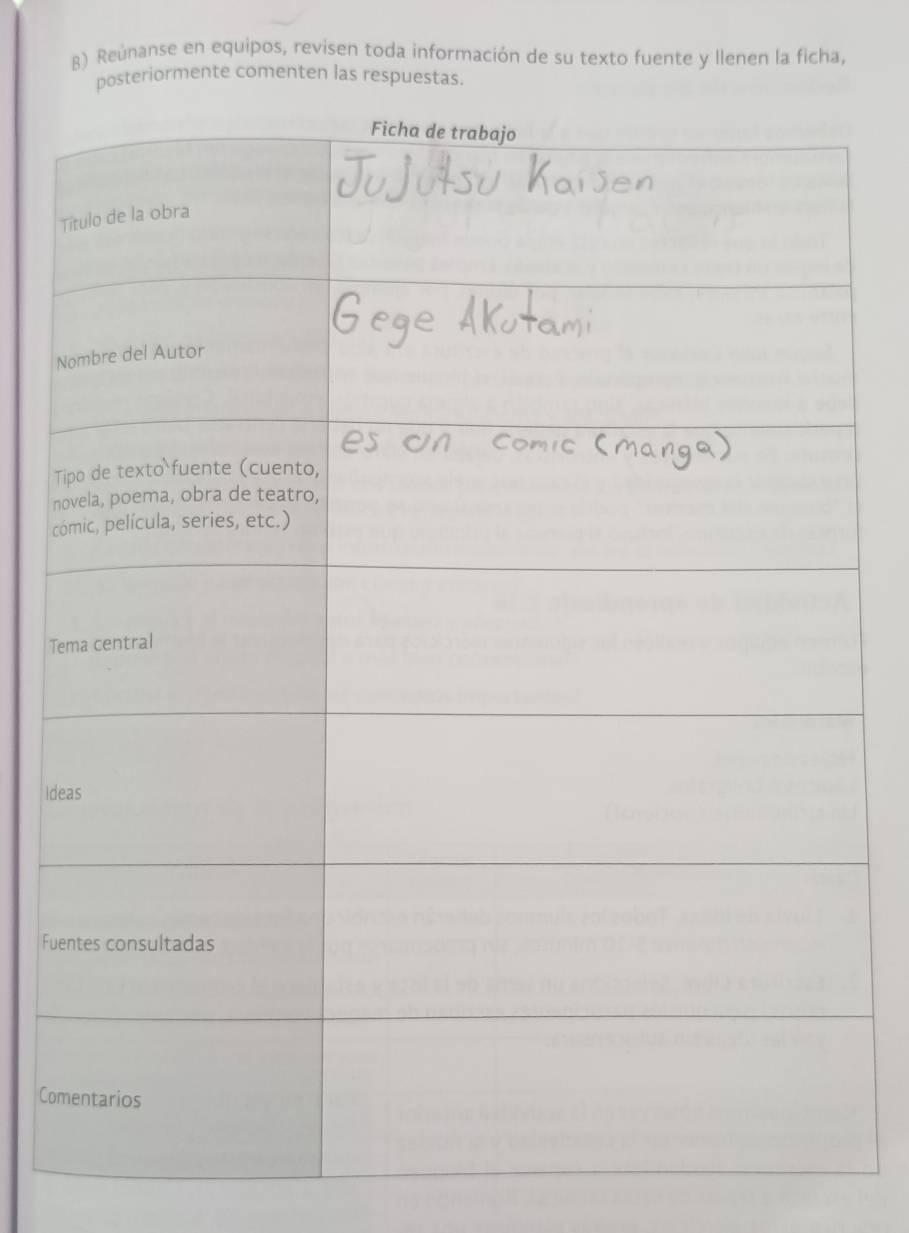 B) Reúnanse en equipos, revisen toda información de su texto fuente y llenen la ficha,
posteriormente comenten las respuestas.
Ficha de trabajo
Título de la obra
Jujutsu Kaisen
Nombre del Autor
Gege Akutami
Tipo de texto fuente (cuento,
novela, poema, obra de teatro,
cómic, película, series, etc.)
es un comic (manga)
Tema central
Ideas
Fuentes consultadas
Comentarios